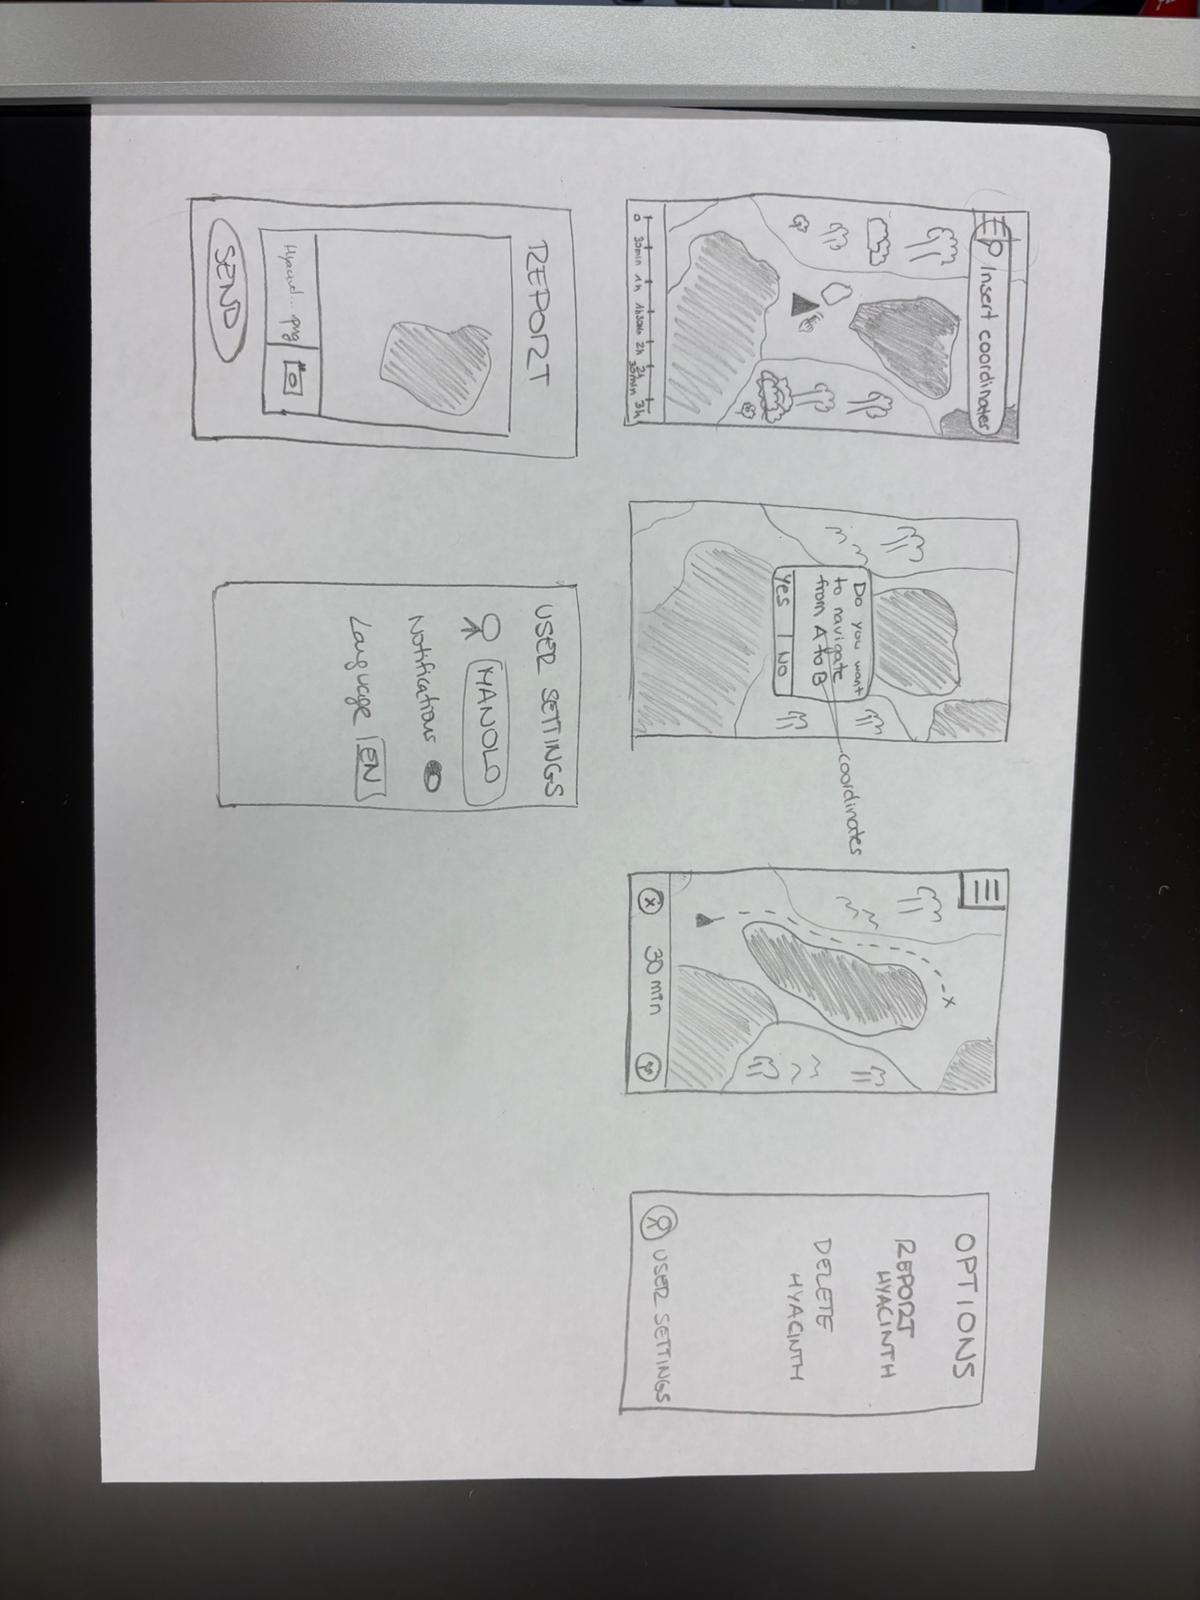 Insert coordinates
0 30min 1h 1h30min 2h 2h 30min 3h
Do you want
to navigate
from A to B
Yes NO
coordinates
X
30 min
X
OPTIONS
REPORT
HYACINTH
DELETE
HYACINTH
USER SETTINGS
REPORT
.png
SEND
USER SETTINGS
MANOLO
Notifications
Language EN